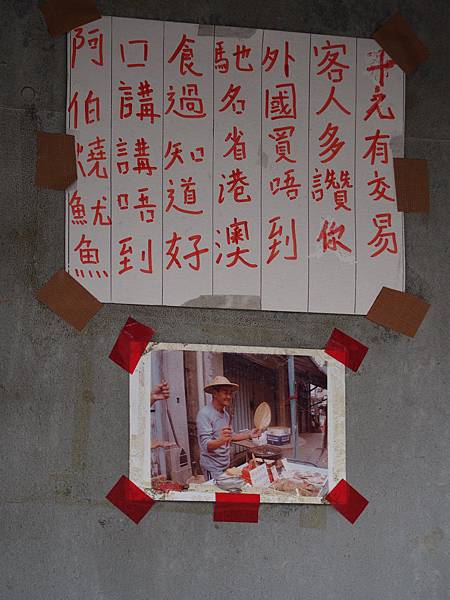 元有交易
客人多讚你
外國買唔到
馳名省港澳
食過知道好
口講講唔到
阿伯燒魷魚